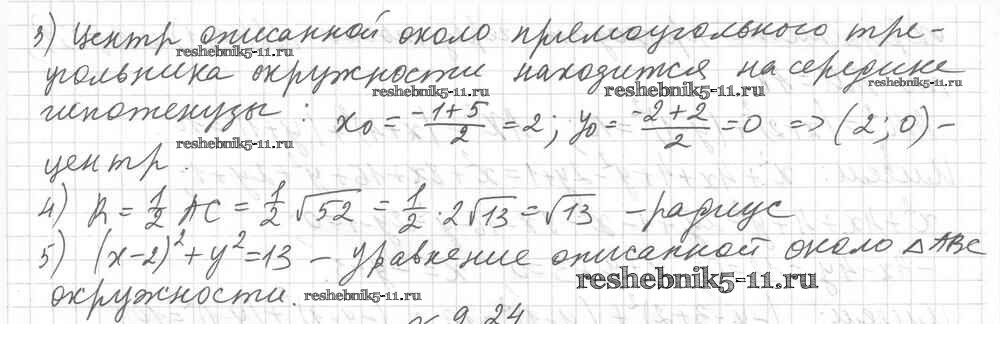 3) Центр описанной около прямоугольного тре-
reshebnik5-11.ru
угольника окружности находится на середине
reshebnik5-11.ru reshebnik5-11.ru reshebnik5-11.ru
гипотенузы : x₀ = (-1+5)/2 = 2; y₀ = (-2+2)/2 = 0 => (2; 0) –
центр. reshebnik5-11.ru
4) R = 1/2 AC = 1/2 √52 = 1/2 · 2√13 = √13 – радиус
5) (x-2)² + y² = 13 – уравнение описанной около △ABC
reshebnik5-11.ru
окружности. reshebnik5-11.ru
9.24